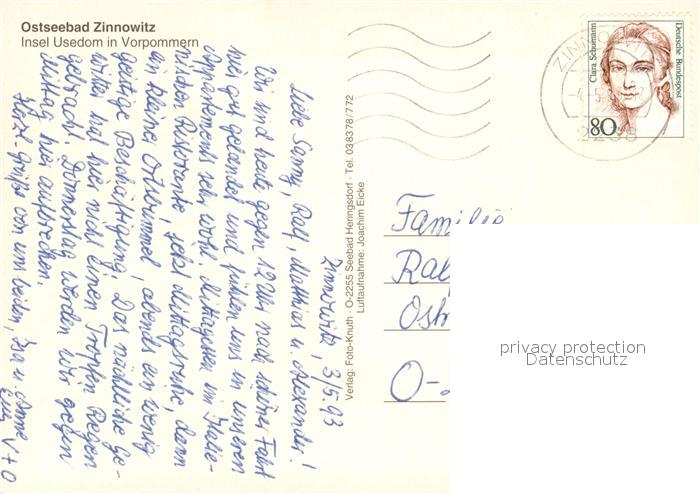 Ostseebad Zinnowitz
Insel Usedom in Vorpommern
Zinnowitz, 3/5.93
Liebe Sanny, Ralf, Matthias u. Alexander!
Wir sind heute gegen 12 Uhr nach schöner Fahrt
hier gut gelandet und fühlen uns in unserem
Appartements sehr wohl. Mittagessen im Italie-
nischen Ristorante, jetzt Mittagsruhe, dann
ein kleiner Ortsbummel, abends ein wenig
geistige Beschäftigung. Das nächtliche Ge-
witter hat hier nicht einen Tropfen Regen
gebracht. Donnerstag werden wir gegen
Mittag hier aufbrechen.
Herzl. Grüße von uns beiden, u. Anne
Eure V + O
Verlag: Foto-Knuth · O-2255 Seebad Heringsdorf · Tel. 038378/772
Luftaufnahme: Joachim Eicke
ZINNO
2238
Clara Schumann
Deutsche Bundespost
80
Familie
Ral
Ost
O-
privacy protection
Datenschutz